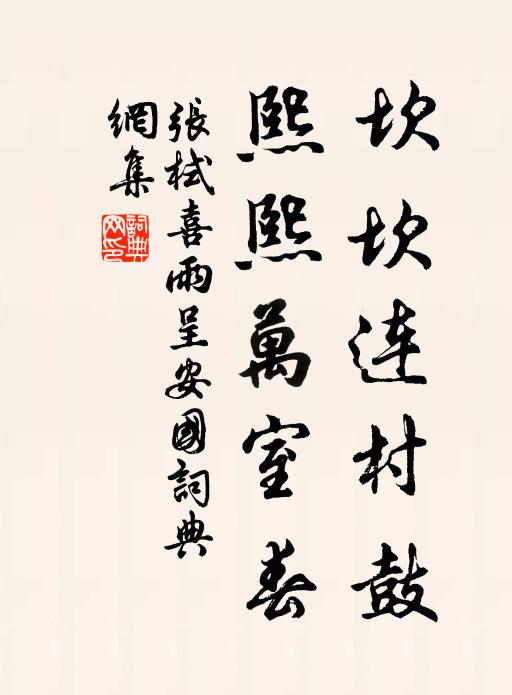 坎坎連村鼓
熙熙萬室春
張栻喜雨呈安國詞典
網集
詞典
网印